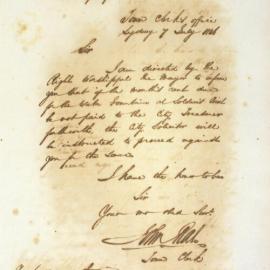 Town Clerk's office
Sydney 7 July 18
Sir
I am directed by the
Right Worshipful the Mayor to inform
you that if the month's rent due
for the Water Fountain at Soldiers
be not paid to the City Treasurer
forthwith, the City Solicitor will
be instructed to proceed against
you for the same
I have the honor to be
Sir
Your
Town Clerk